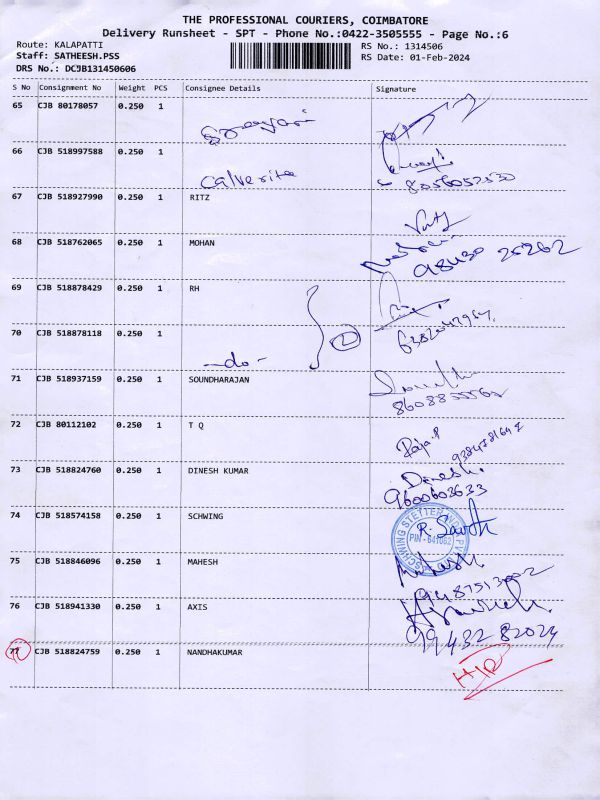 THE PROFESSIONAL COURIERS, COIMBATORE
Delivery Runsheet - SPT - Phone No.:0422-3505555 - Page No.:6
Route: KALAPATTI RS No.: 1314506
Staff: SATHEESH.PSS RS Date: 01-Feb-2024
DRS No.: DCJB131450606
S No Consignment No Weight PCS Consignee Details Signature
65 CJB 80178057 0.250 1
66 CJB 518997588 0.250 1
Calverite 8056052530
67 CJB 518927990 0.250 1 RITZ
68 CJB 518762065 0.250 1 MOHAN
69 CJB 518878429 0.250 1 RH
70 CJB 518878118 0.250 1
-do-
71 CJB 518937159 0.250 1 SOUNDHARAJAN
72 CJB 80112102 0.250 1 T Q
Raja.P
73 CJB 518824760 0.250 1 DINESH KUMAR
Dinesh.
9600603633
74 CJB 518574158 0.250 1 SCHWING
PIN - 641062
75 CJB 518846096 0.250 1 MAHESH
Mahesh
76 CJB 518941330 0.250 1 AXIS
77 CJB 518824759 0.250 1 NANDHAKUMAR